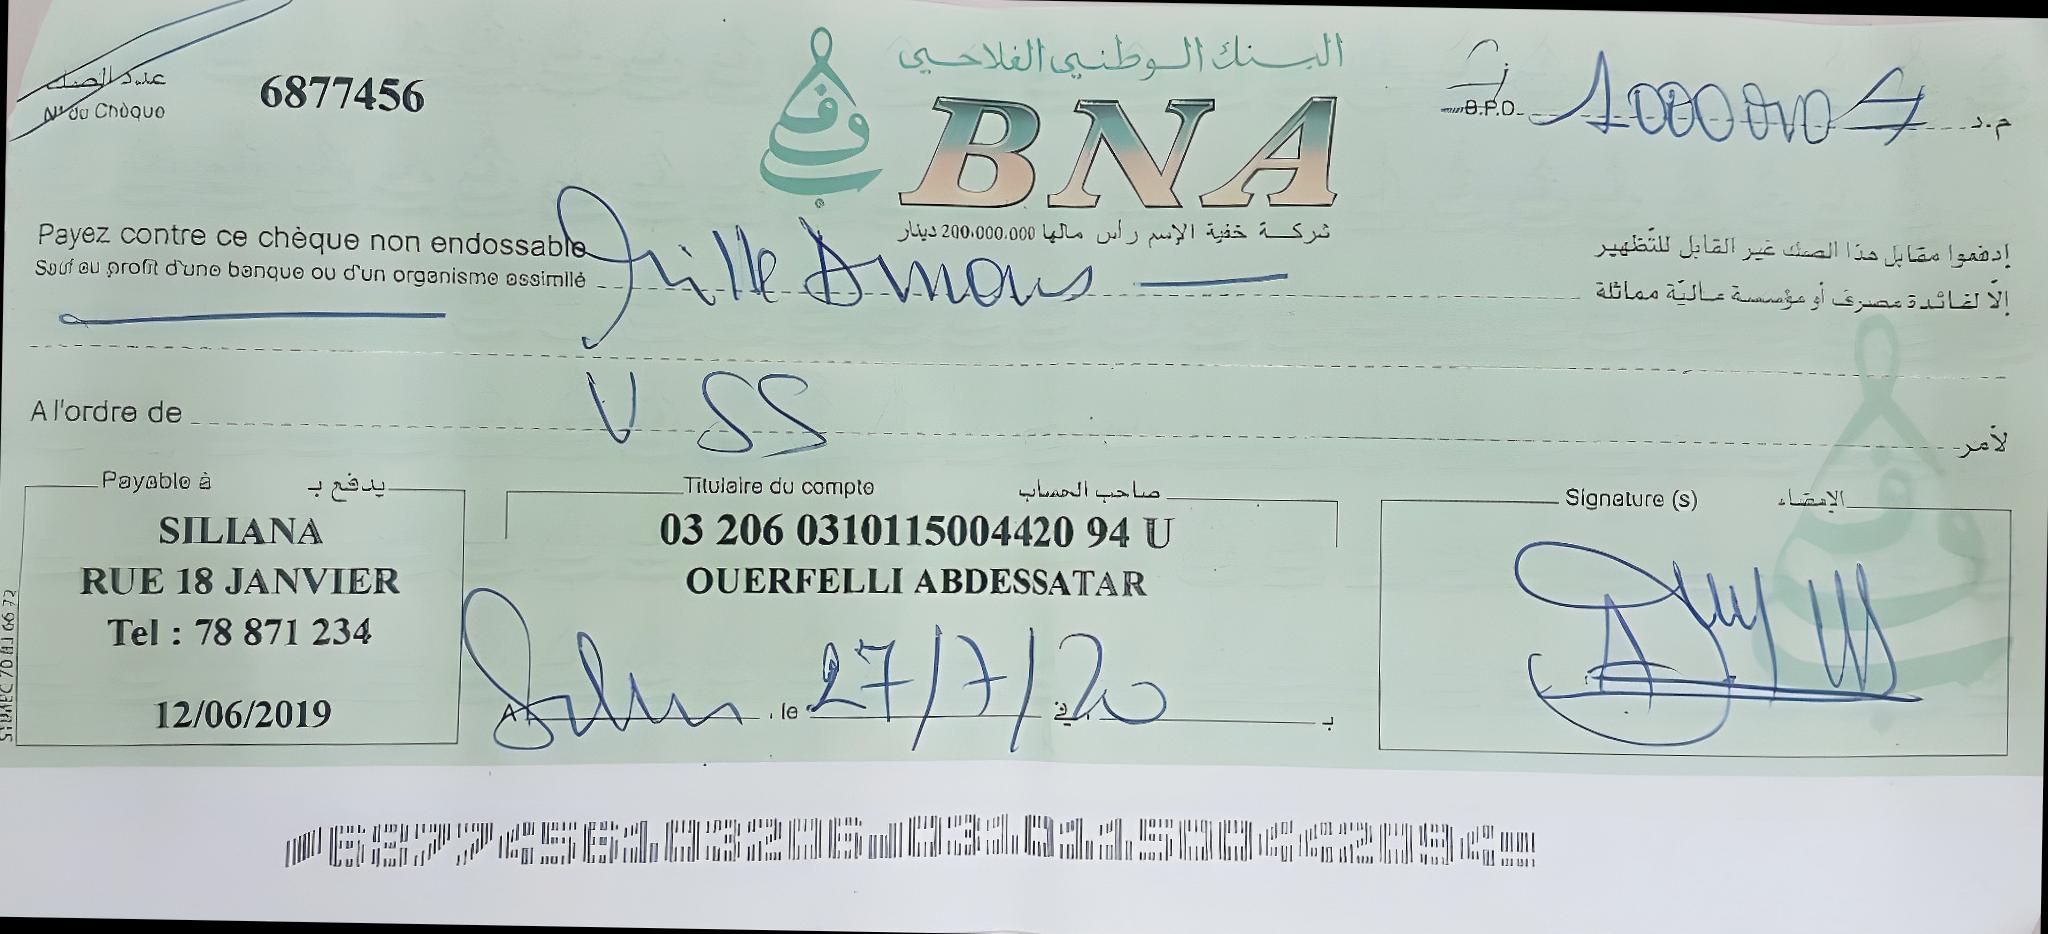 عدد الصك
N° du Chèque
6877456
البنك الوطني الفلاحي
BNA
شركة خفية الإسم رأس مالها 200.000.000 دينار
B.P.D.
م.د
Payez contre ce chèque non endossable
Sauf au profit d'une banque ou d'un organisme assimilé
إدفعوا مقابل هذا الصك غير القابل للتّظهير
إلاّ لفائدة مصرف أو مؤسسة ماليّة مماثلة
Mille Dinars
A l'ordre de
لأمر
Payable à يدفع بـ
SILIANA
RUE 18 JANVIER
Tel : 78 871 234
12/06/2019
Titulaire du compte صاحب الحساب
03 206 0310115004420 94 U
OUERFELLI ABDESSATAR
A , le 27/7/20 في بـ
Signature (s) الإمضاء
6877456 03206 0310115004420 94